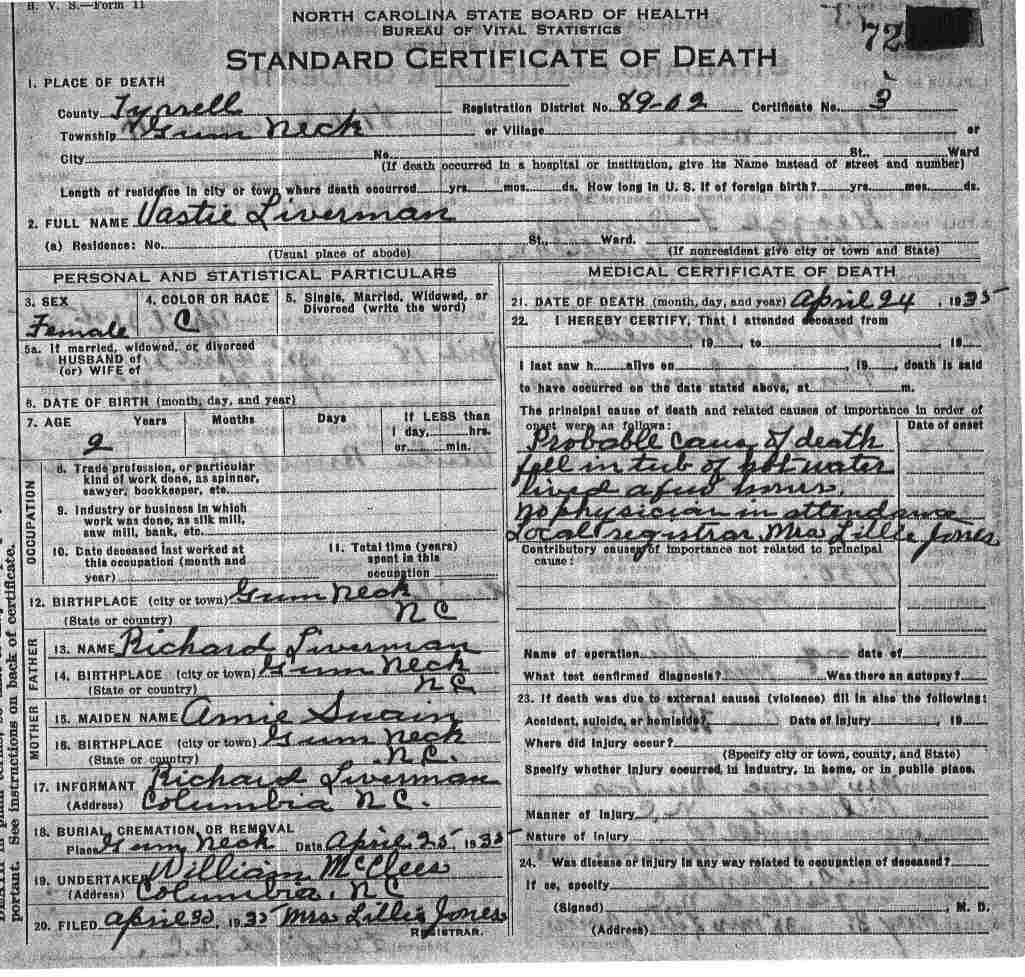 B. V. S.—Form 11
NORTH CAROLINA STATE BOARD OF HEALTH
BUREAU OF VITAL STATISTICS
72
STANDARD CERTIFICATE OF DEATH
1. PLACE OF DEATH
County Tyrrell Registration District No. 89-02 Certificate No. 3
Township Gum Neck or Village or
City No. St., Ward
(If death occurred in a hospital or institution, give its Name instead of street and number)
Length of residence in city or town where death occurred yrs. mos. ds. How long in U. S. if of foreign birth? yrs. mos. ds.
2. FULL NAME Vastie Liverman
(a) Residence: No. St., Ward.
(Usual place of abode) (If nonresident give city or town and State)
PERSONAL AND STATISTICAL PARTICULARS
3. SEX 4. COLOR OR RACE 5. Single, Married, Widowed, or
Divorced (write the word)
Female C
5a. If married, widowed, or divorced
HUSBAND of
(or) WIFE of
6. DATE OF BIRTH (month, day, and year)
7. AGE Years Months Days If LESS than
1 day, hrs.
2 or min.
OCCUPATION
8. Trade profession, or particular
kind of work done, as spinner,
sawyer, bookkeeper, etc.
9. Industry or business in which
work was done, as silk mill,
saw mill, bank, etc.
10. Date deceased last worked at
this occupation (month and
year)
11. Total time (years)
spent in this
occupation
12. BIRTHPLACE (city or town) Gum Neck
(State or country) N C
FATHER
13. NAME Richard Liverman
14. BIRTHPLACE (city or town) Gum Neck
(State or country) N C
MOTHER
15. MAIDEN NAME Amie Swain
16. BIRTHPLACE (city or town) Gum Neck
(State or country) N.C.
17. INFORMANT Richard Liverman
(Address) Columbia N.C.
18. BURIAL, CREMATION, OR REMOVAL
Place Gum Neck Date April 25, 1935
19. UNDERTAKER William McClees
(Address) Columbia, N C
20. FILED April 30, 1935 Mrs Lillie Jones
REGISTRAR.
MEDICAL CERTIFICATE OF DEATH
21. DATE OF DEATH (month, day, and year) April 24, 1935
22. I HEREBY CERTIFY, That I attended deceased from
19 to 19
I last saw h alive on , 19 , death is said
to have occurred on the date stated above, at m.
The principal cause of death and related causes of importance in order of
onset were as follows: Date of onset
Probable cause of death
fell in tub of hot water
lived a few hours.
no physician in attendance
Local registrar Mrs Lillie Jones
Contributory causes of importance not related to principal
cause:
Name of operation date of
What test confirmed diagnosis? Was there an autopsy?
23. If death was due to external causes (violence) fill in also the following:
Accident, suicide, or homicide? Date of injury , 19
Where did injury occur?
(Specify city or town, county, and State)
Specify whether injury occurred, in industry, in home, or in public place.
Manner of injury
Nature of injury
24. Was disease or injury in any way related to occupation of deceased?
If so, specify
(Signed) , M. D.
(Address)
portant. See instructions on back of certificate.